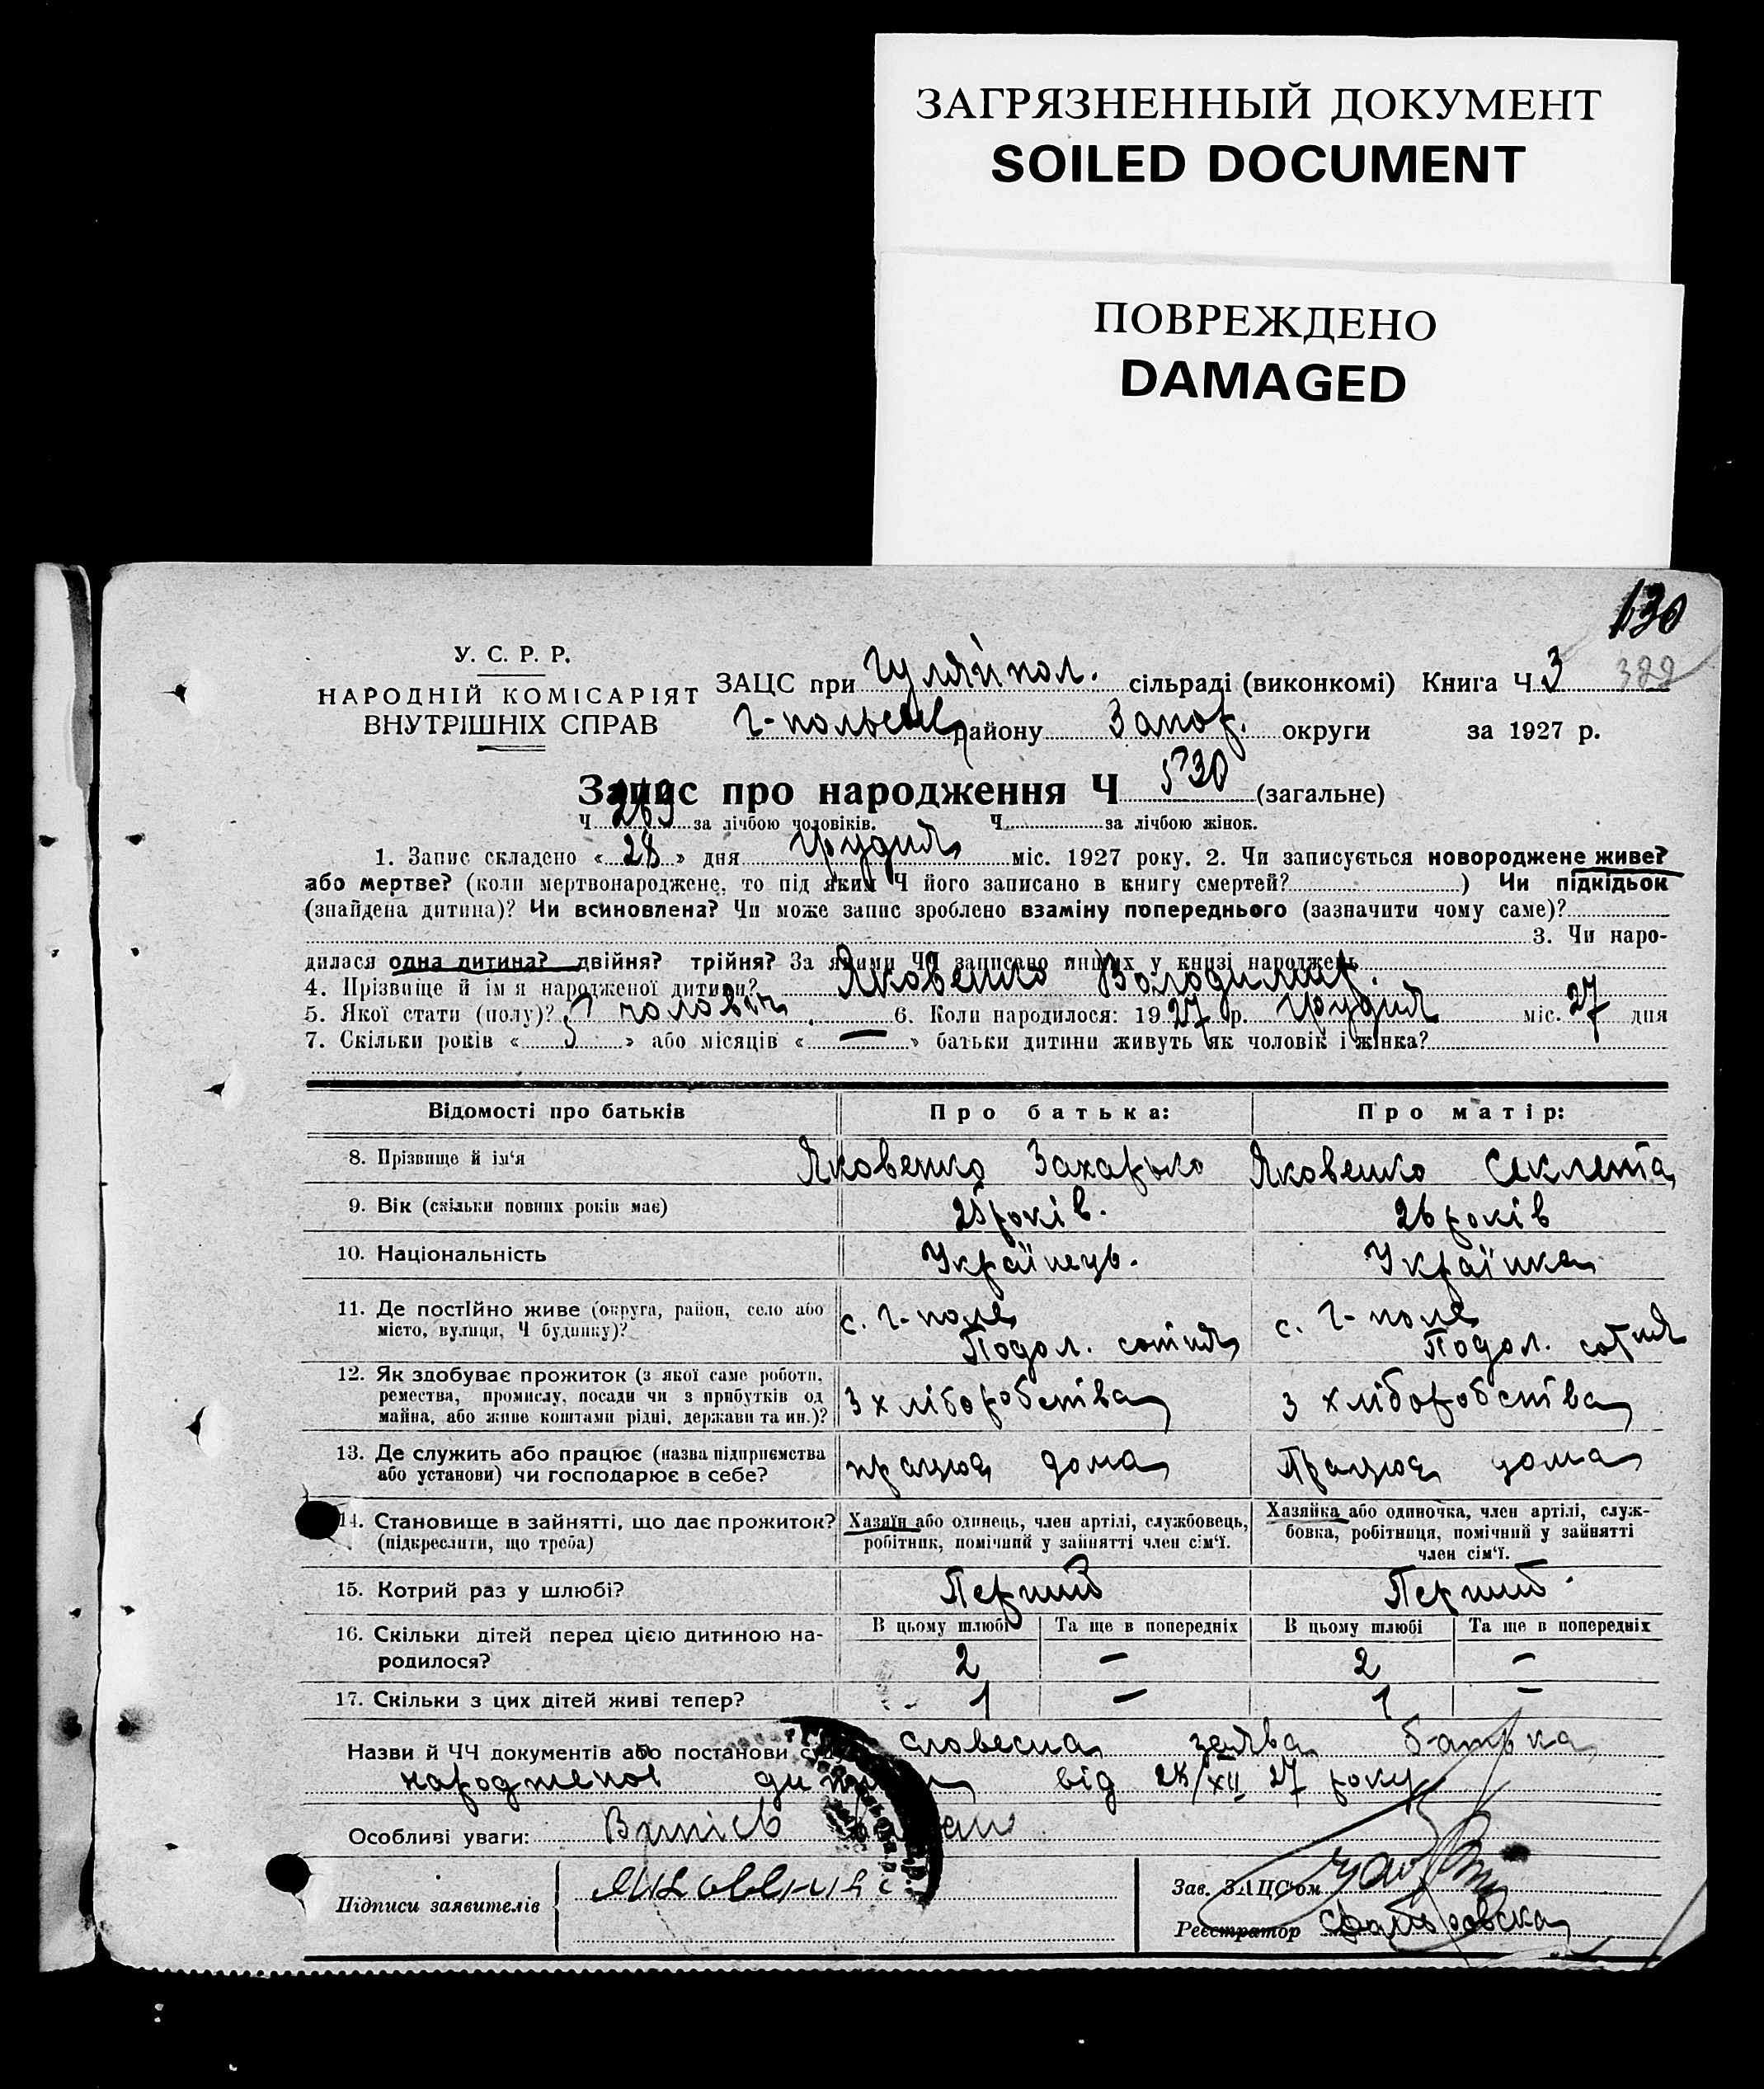 ЗАГРЯЗНЕННЫЙ ДОКУМЕНТ
SOILED DOCUMENT
ПОВРЕЖДЕНО
DAMAGED
130
322
У. С. Р. Р.
НАРОДНІЙ КОМІСАРІЯТ
ВНУТРІШНІХ СПРАВ
ЗАЦС при Гуляйпол. сільраді (виконкомі) Книга Ч 3
Г-польськ району Запор. округи за 1927 р.
Запис про народження Ч 530 (загальне)
Ч 269 за лічбою чоловіків. Ч за лічбою жінок.
1. Запис складено « 28 » дня Грудня міс. 1927 року. 2. Чи записується новороджене живе?
або мертве? (коли мертвонароджене, то під яким Ч його записано в книгу смертей? ) Чи підкідьок
(знайдена дитина)? Чи всиновлена? Чи може запис зроблено взаміну попереднього (зазначити чому саме)?
3. Чи наро-
дилася одна дитина? двійня? трійня? За якими ЧЧ записано инших у книзі народжень
4. Прізвище й ім'я народженої дитини? Яковенко Володимир.
5. Якої стати (полу)? чоловіч. 6. Коли народилося: 1927 р. Грудня міс. 27 дня
7. Скільки років « 5 » або місяців « — » батьки дитини живуть як чоловік і жінка?
Відомості про батьків Про батька: Про матір:
8. Прізвище й ім'я Яковенко Захарько Яковенко Секлета
9. Вік (скільки повних років має) 25 років. 26 років
10. Національність Українець. Українка
11. Де постійно живе (округа, район, село або с. Г-поле с. Г-поле
місто, вулиця, Ч будинку)? Подол. сотня Подол. сотня
12. Як здобуває прожиток (з якої саме роботи,
ремества, промислу, посади чи з прибутків од з хліборобства з хліборобства
майна, або живе коштами рідні, держави та ин.)?
13. Де служить або працює (назва підприємства працює дома Працює дома
або установи) чи господарює в себе?
14. Становище в зайнятті, що дає прожиток? Хазяїн або одинець, член артілі, службовець, Хазяйка або одиночка, член артілі, служ-
(підкреслити, що треба) робітник, помічний у зайнятті член сім'ї. бовка, робітниця, помічний у зайнятті
член сім'ї.
15. Котрий раз у шлюбі? Перший Перший.
16. Скільки дітей перед цією дитиною на- В цьому шлюбі Та ще в попередніх В цьому шлюбі Та ще в попередніх
родилося? 2 — 2 —
17. Скільки з цих дітей живі тепер? 1 — 1 —
Назви й ЧЧ документів або постанови словесна заява батька
народженої дитини від 28/XII 27 року
Особливі уваги: Випісь
Підписи заявителів
Зав. ЗАЦС'ом
Реєстратор